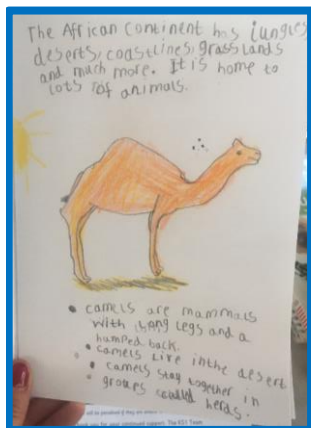 The African Continent has jungles,
deserts, coastlines, grasslands
and much more. It is home to
lots of animals.
• camels are mammals
with long legs and a
humped back.
• camels live in the desert
• camels stay together in
groups called herds.